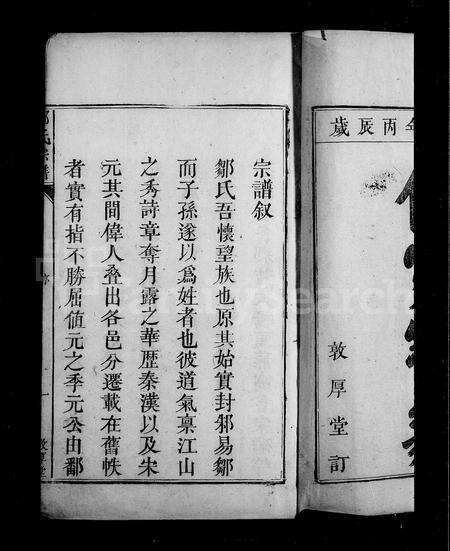 年丙辰歲
敦厚堂訂
宗譜叙
鄒氏吾懷望族也原其始實封邾易鄒
而子孫遂以爲姓者也彼道氣稟江山
之秀詩章奪月露之華歷秦漢以及宋
元其間偉人叠出各邑分遷載在舊帙
者實有指不勝屈值元之季元公由鄱
氏宗譜
序
一
敦厚堂